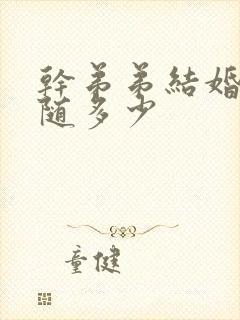 幹弟弟結婚
随多少
童健